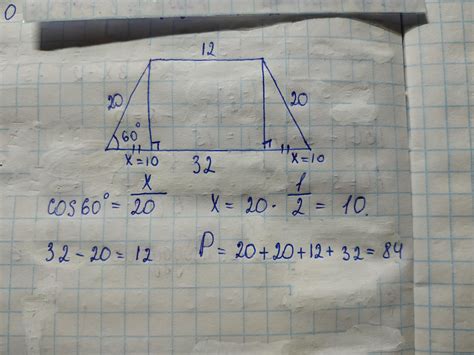 0
12
20
20
60°
x=10
32
x=10
cos60° = x/20    x = 20 · 1/2 = 10.
32 - 20 = 12    P = 20+20+12+32 = 84